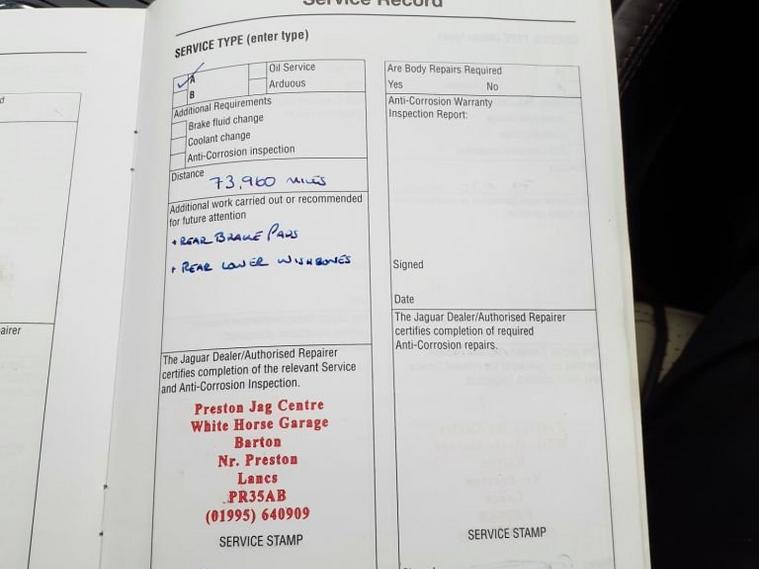 Service Record
SERVICE TYPE (enter type)
A
B
Oil Service
Arduous
Additional Requirements
Brake fluid change
Coolant change
Anti-Corrosion inspection
Distance
73,960 MILES
Additional work carried out or recommended
for future attention
+ REAR BRAKE PADS
+ REAR LOWER WISHBONES
The Jaguar Dealer/Authorised Repairer
certifies completion of the relevant Service
and Anti-Corrosion Inspection.
Preston Jag Centre
White Horse Garage
Barton
Nr. Preston
Lancs
PR35AB
(01995) 640909
SERVICE STAMP
Are Body Repairs Required
Yes No
Anti-Corrosion Warranty
Inspection Report:
Signed
Date
The Jaguar Dealer/Authorised Repairer
certifies completion of required
Anti-Corrosion repairs.
SERVICE STAMP